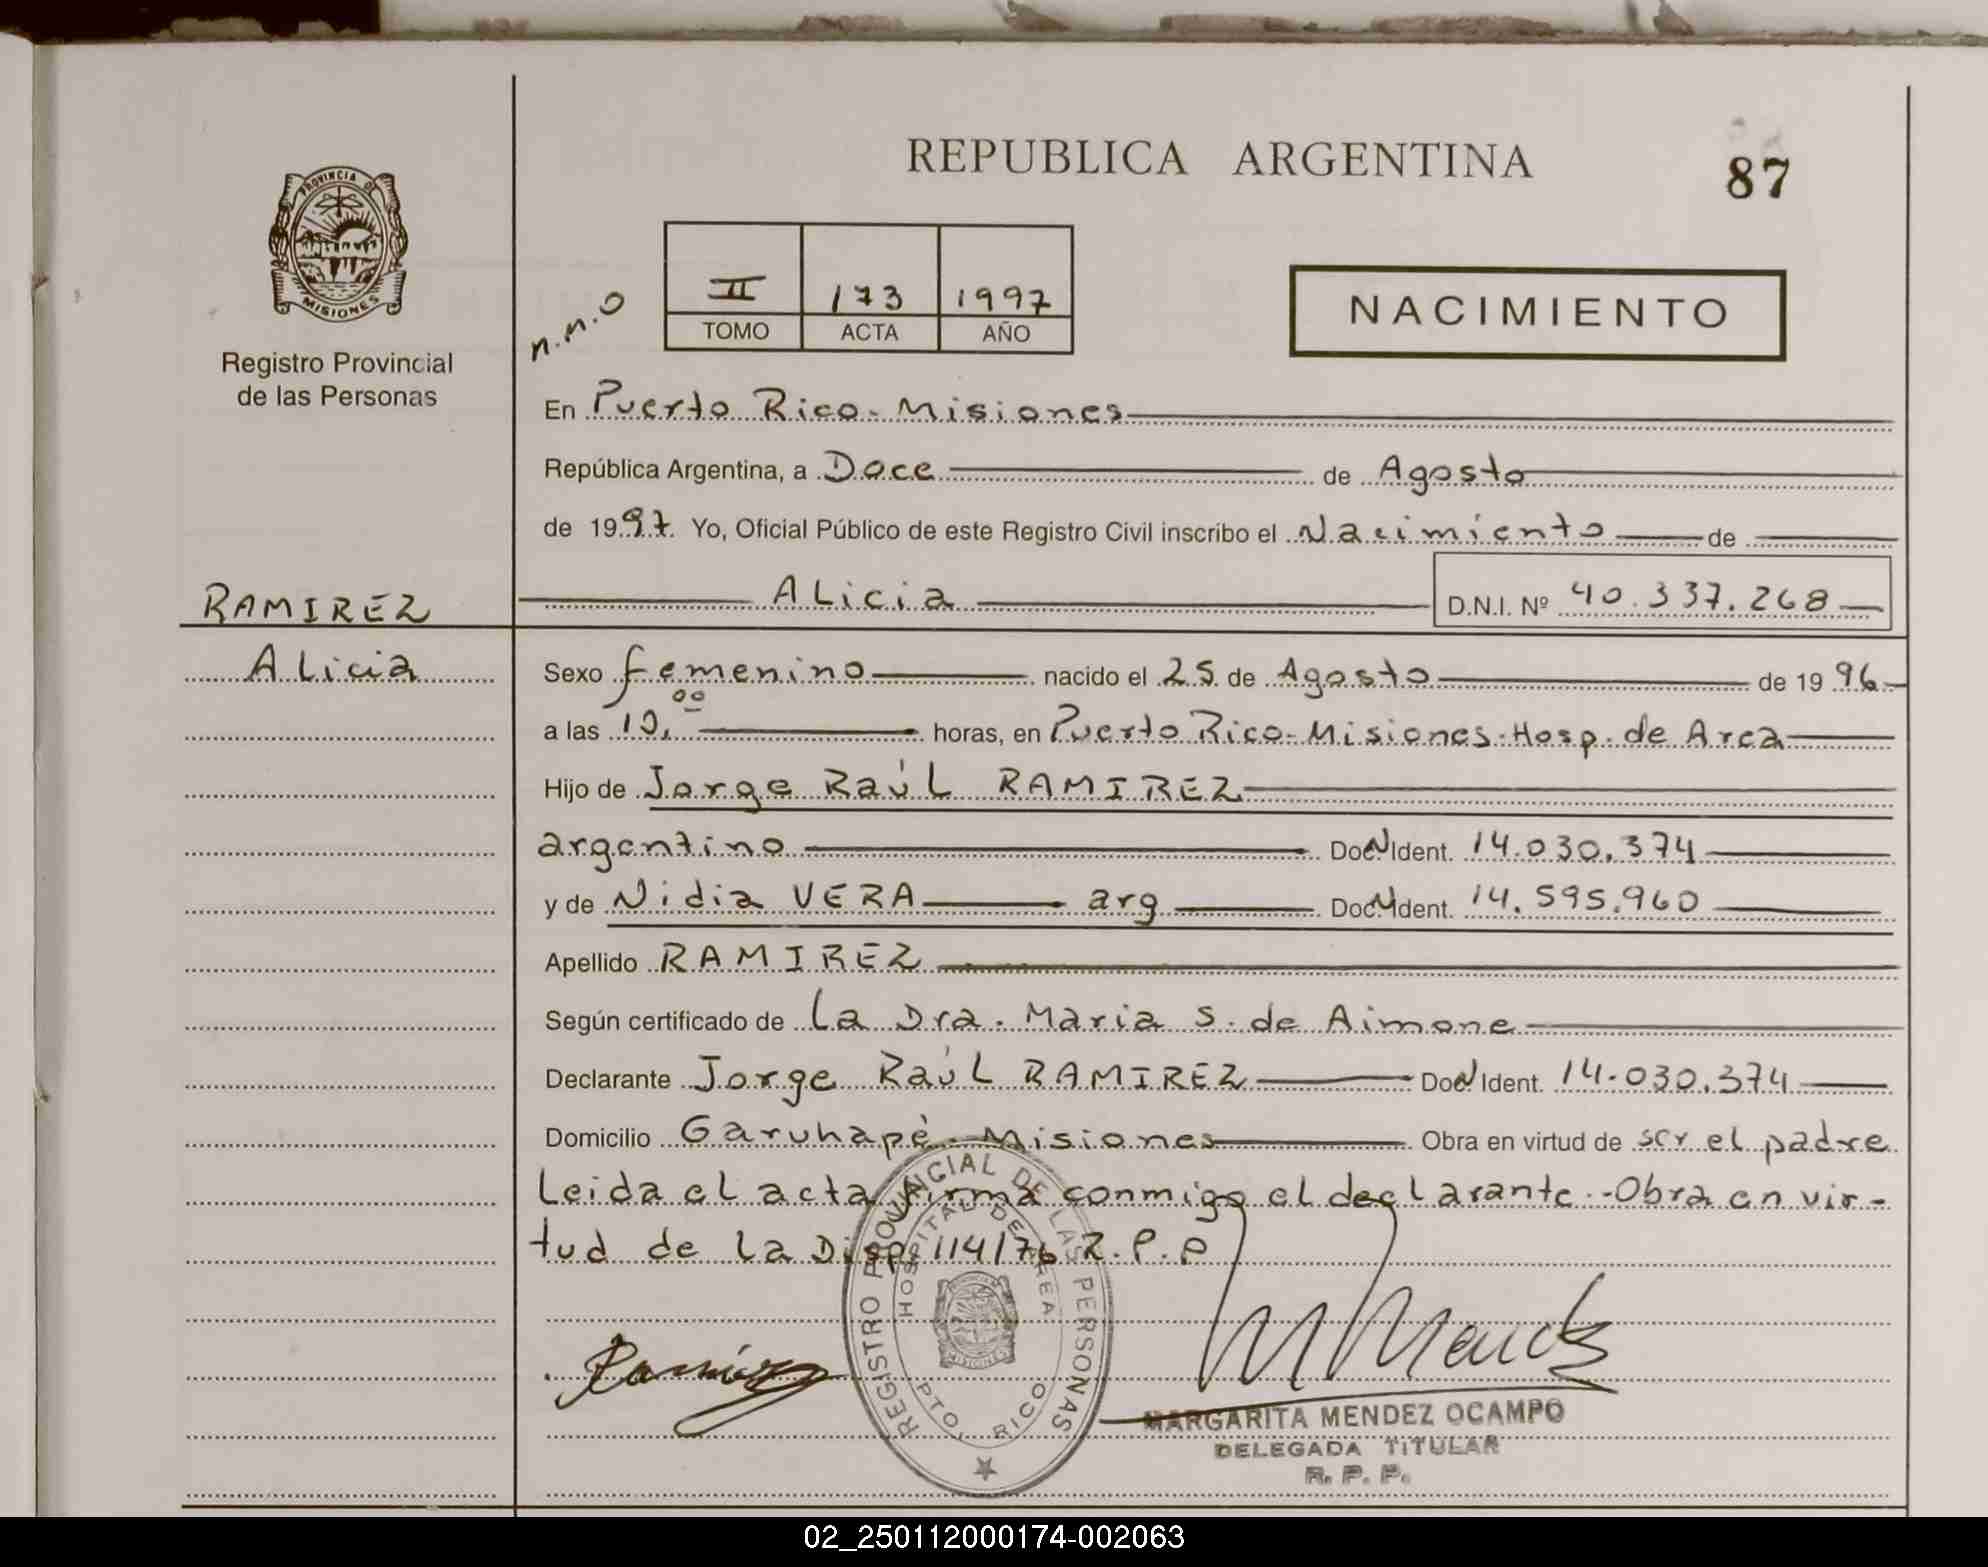 REPUBLICA ARGENTINA
87
PROVINCIA DE
MISIONES
Registro Provincial
de las Personas
n.n.o
II 173 1997
TOMO ACTA AÑO
NACIMIENTO
En Puerto Rico - Misiones
República Argentina, a Doce de Agosto
de 1997. Yo, Oficial Público de este Registro Civil inscribo el Nacimiento de
RAMIREZ
Alicia
ALicia D.N.I. Nº 40.337.268
Sexo femenino nacido el 25 de Agosto de 1996
a las 10,00 horas, en Puerto Rico - Misiones - Hosp. de Area
Hijo de Jorge Raúl RAMIREZ
argentino Doc. N Ident. 14.030.374
y de Nidia VERA arg Doc. N Ident. 14.595.960
Apellido RAMIREZ
Según certificado de La Dra. Maria S. de Aimone
Declarante Jorge Raúl RAMIREZ Doc. N Ident. 14.030.374
Domicilio Garuhapé - Misiones Obra en virtud de ser el padre
Leida el acta firma conmigo el declarante.-Obra en vir-
tud de la Disp. 114/76 R.P.P
Ramirez
REGISTRO PROVINCIAL DE LAS PERSONAS
HOSPITAL DE AREA
MISIONES
PTO. RICO
M Mendez
MARGARITA MENDEZ OCAMPO
DELEGADA TITULAR
R. P. P.
02_250112000174-002063